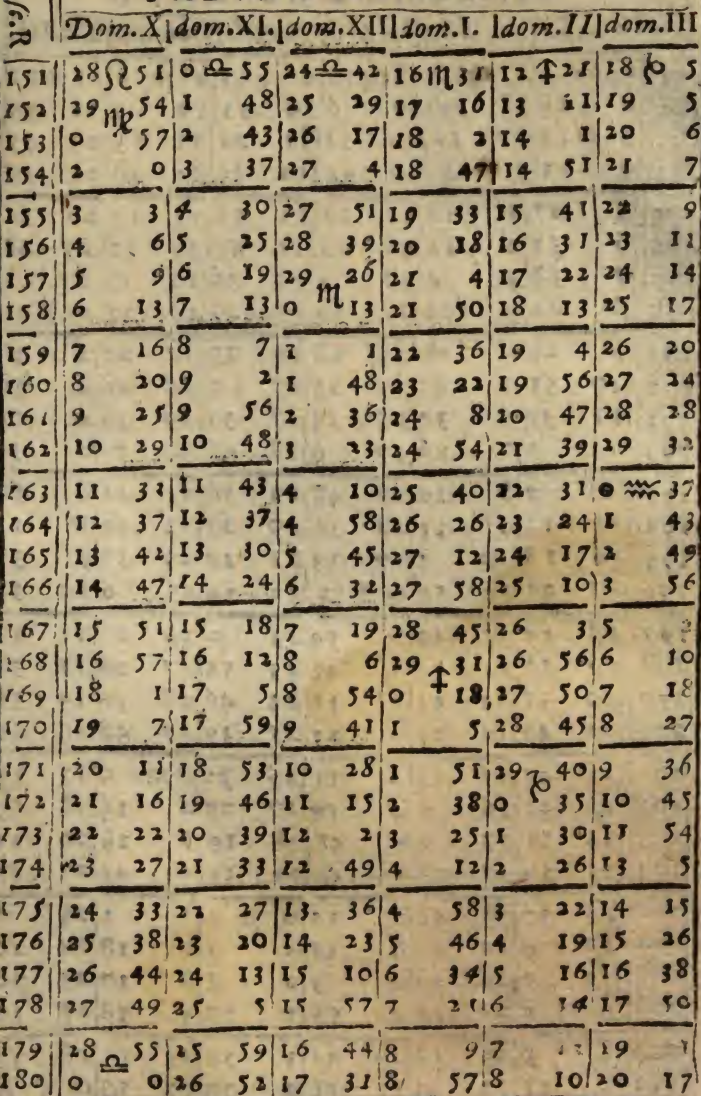 Asc. R
Dom. X dom. XI. dom. XII dom. I. dom. II dom. III
151 28 ♌ 51 0 ♎ 55 24 ♎ 42 16 ♏ 31 12 ♐ 21 18 ♑ 5
152 29 ♍ 54 1 48 25 29 17 16 13 11 19 5
153 0 57 2 43 26 17 18 2 14 1 20 6
154 2 0 3 37 27 4 18 47 14 51 21 7
155 3 3 4 30 27 51 19 33 15 41 22 9
156 4 6 5 25 28 39 20 18 16 31 23 11
157 5 9 6 19 29 ♏ 26 21 4 17 22 24 14
158 6 13 7 13 0 13 21 50 18 13 25 17
159 7 16 8 7 1 1 22 36 19 4 26 20
160 8 20 9 2 1 48 23 22 19 56 27 24
161 9 25 9 56 2 36 24 8 20 47 28 28
162 10 29 10 48 3 23 24 54 21 39 29 32
163 11 33 11 43 4 10 25 40 22 31 0 ♒ 37
164 12 37 12 37 4 58 26 26 23 24 1 43
165 13 42 13 30 5 45 27 12 24 17 2 49
166 14 47 14 24 6 32 27 58 25 10 3 56
167 15 51 15 18 7 19 28 45 26 3 5
168 16 57 16 12 8 6 29 ♐ 31 26 56 6 10
169 18 1 17 5 8 54 0 18 27 50 7 18
170 19 7 17 59 9 41 1 5 28 45 8 27
171 20 11 18 53 10 28 1 51 29 ♑ 40 9 36
172 21 16 19 46 11 15 2 38 0 35 10 45
173 22 22 20 39 12 2 3 25 1 30 11 54
174 23 27 21 33 12 49 4 12 2 26 13 5
175 24 33 22 27 13 36 4 58 3 22 14 15
176 25 38 23 20 14 23 5 46 4 19 15 26
177 26 44 24 13 15 10 6 34 5 16 16 38
178 27 49 25 5 15 57 7 21 6 14 17 50
179 28 ♎ 55 25 59 16 44 8 9 7 19 1
180 0 0 26 52 17 31 8 57 8 10 20 17